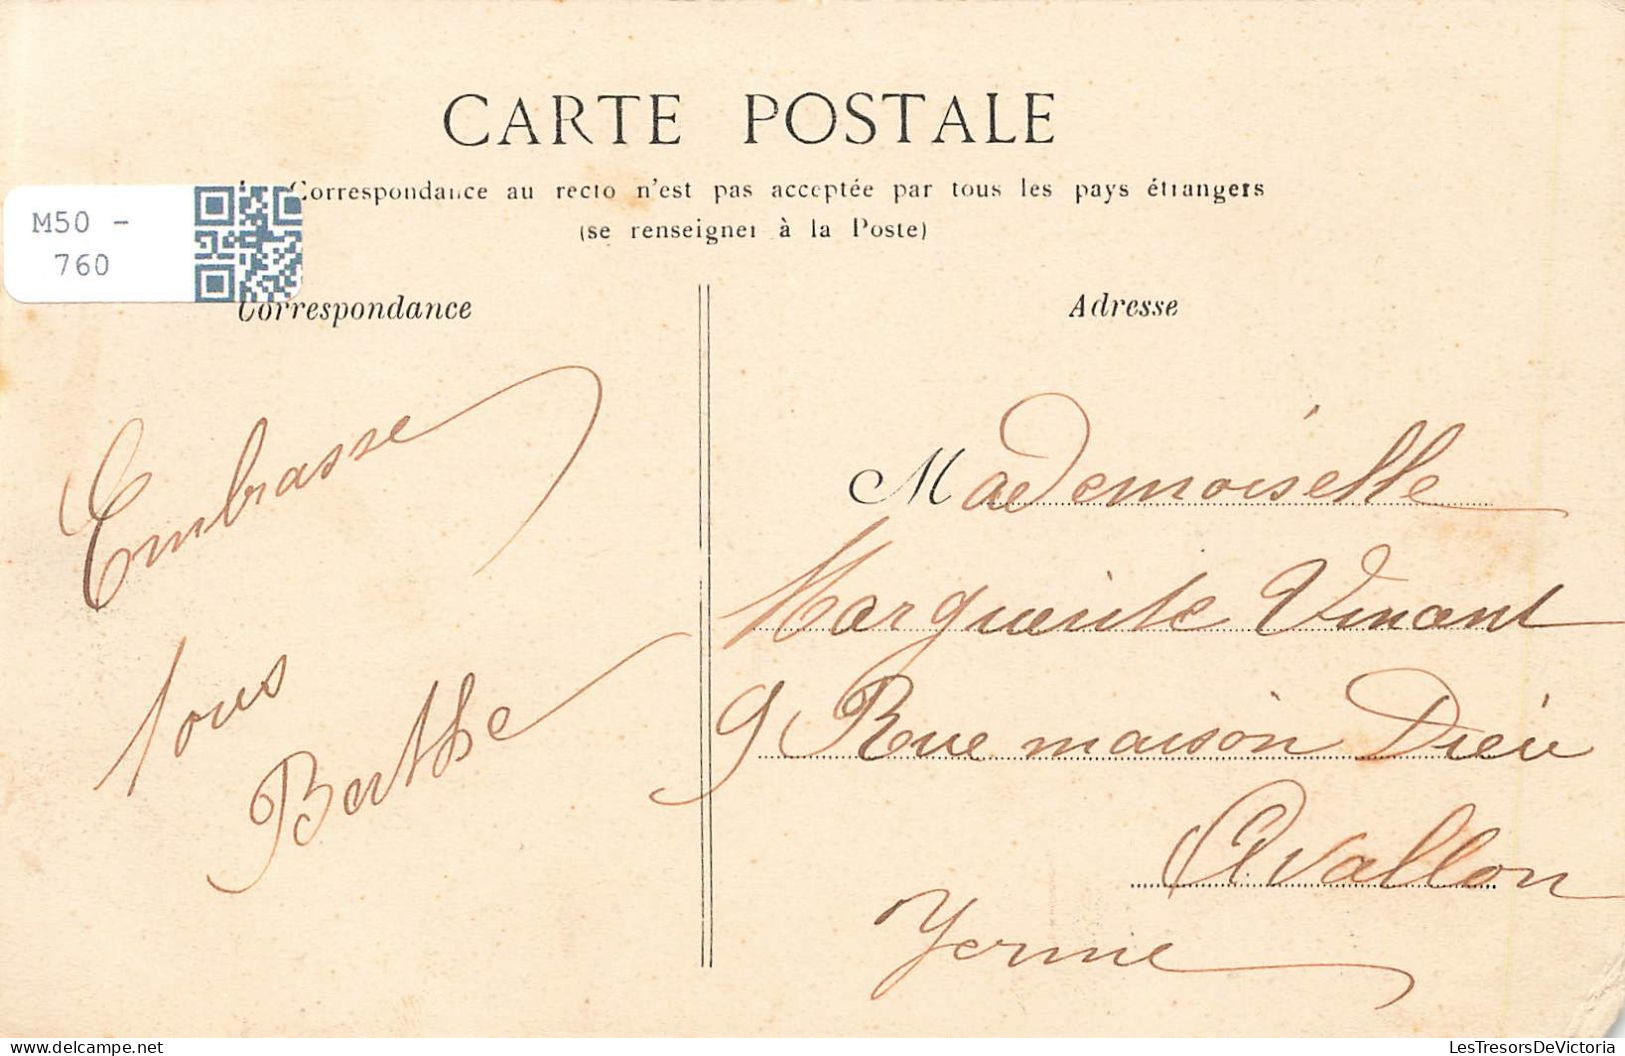 CARTE POSTALE
Correspondance au recto n'est pas acceptée par tous les pays étrangers
(se renseigner à la Poste)
M50 -
760
Correspondance
Adresse
Embrasse
tous
Berthe
Mademoiselle
Marguerite Vinant
9 Rue maison Dieu
Avallon
Yonne
LesTresorsDeVictoria